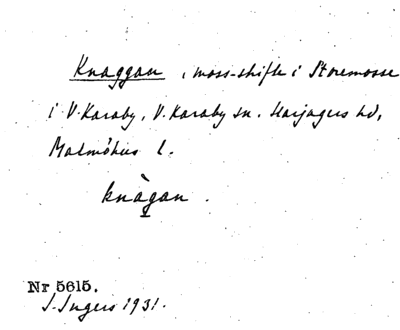 Knaggan, moss-skifte i Storemosse
i V. Karaby, V. Karaby sn. Harjagers hd,
Malmöhus l.
knàgan.
Nr 5615.
I. Ingers 1931.